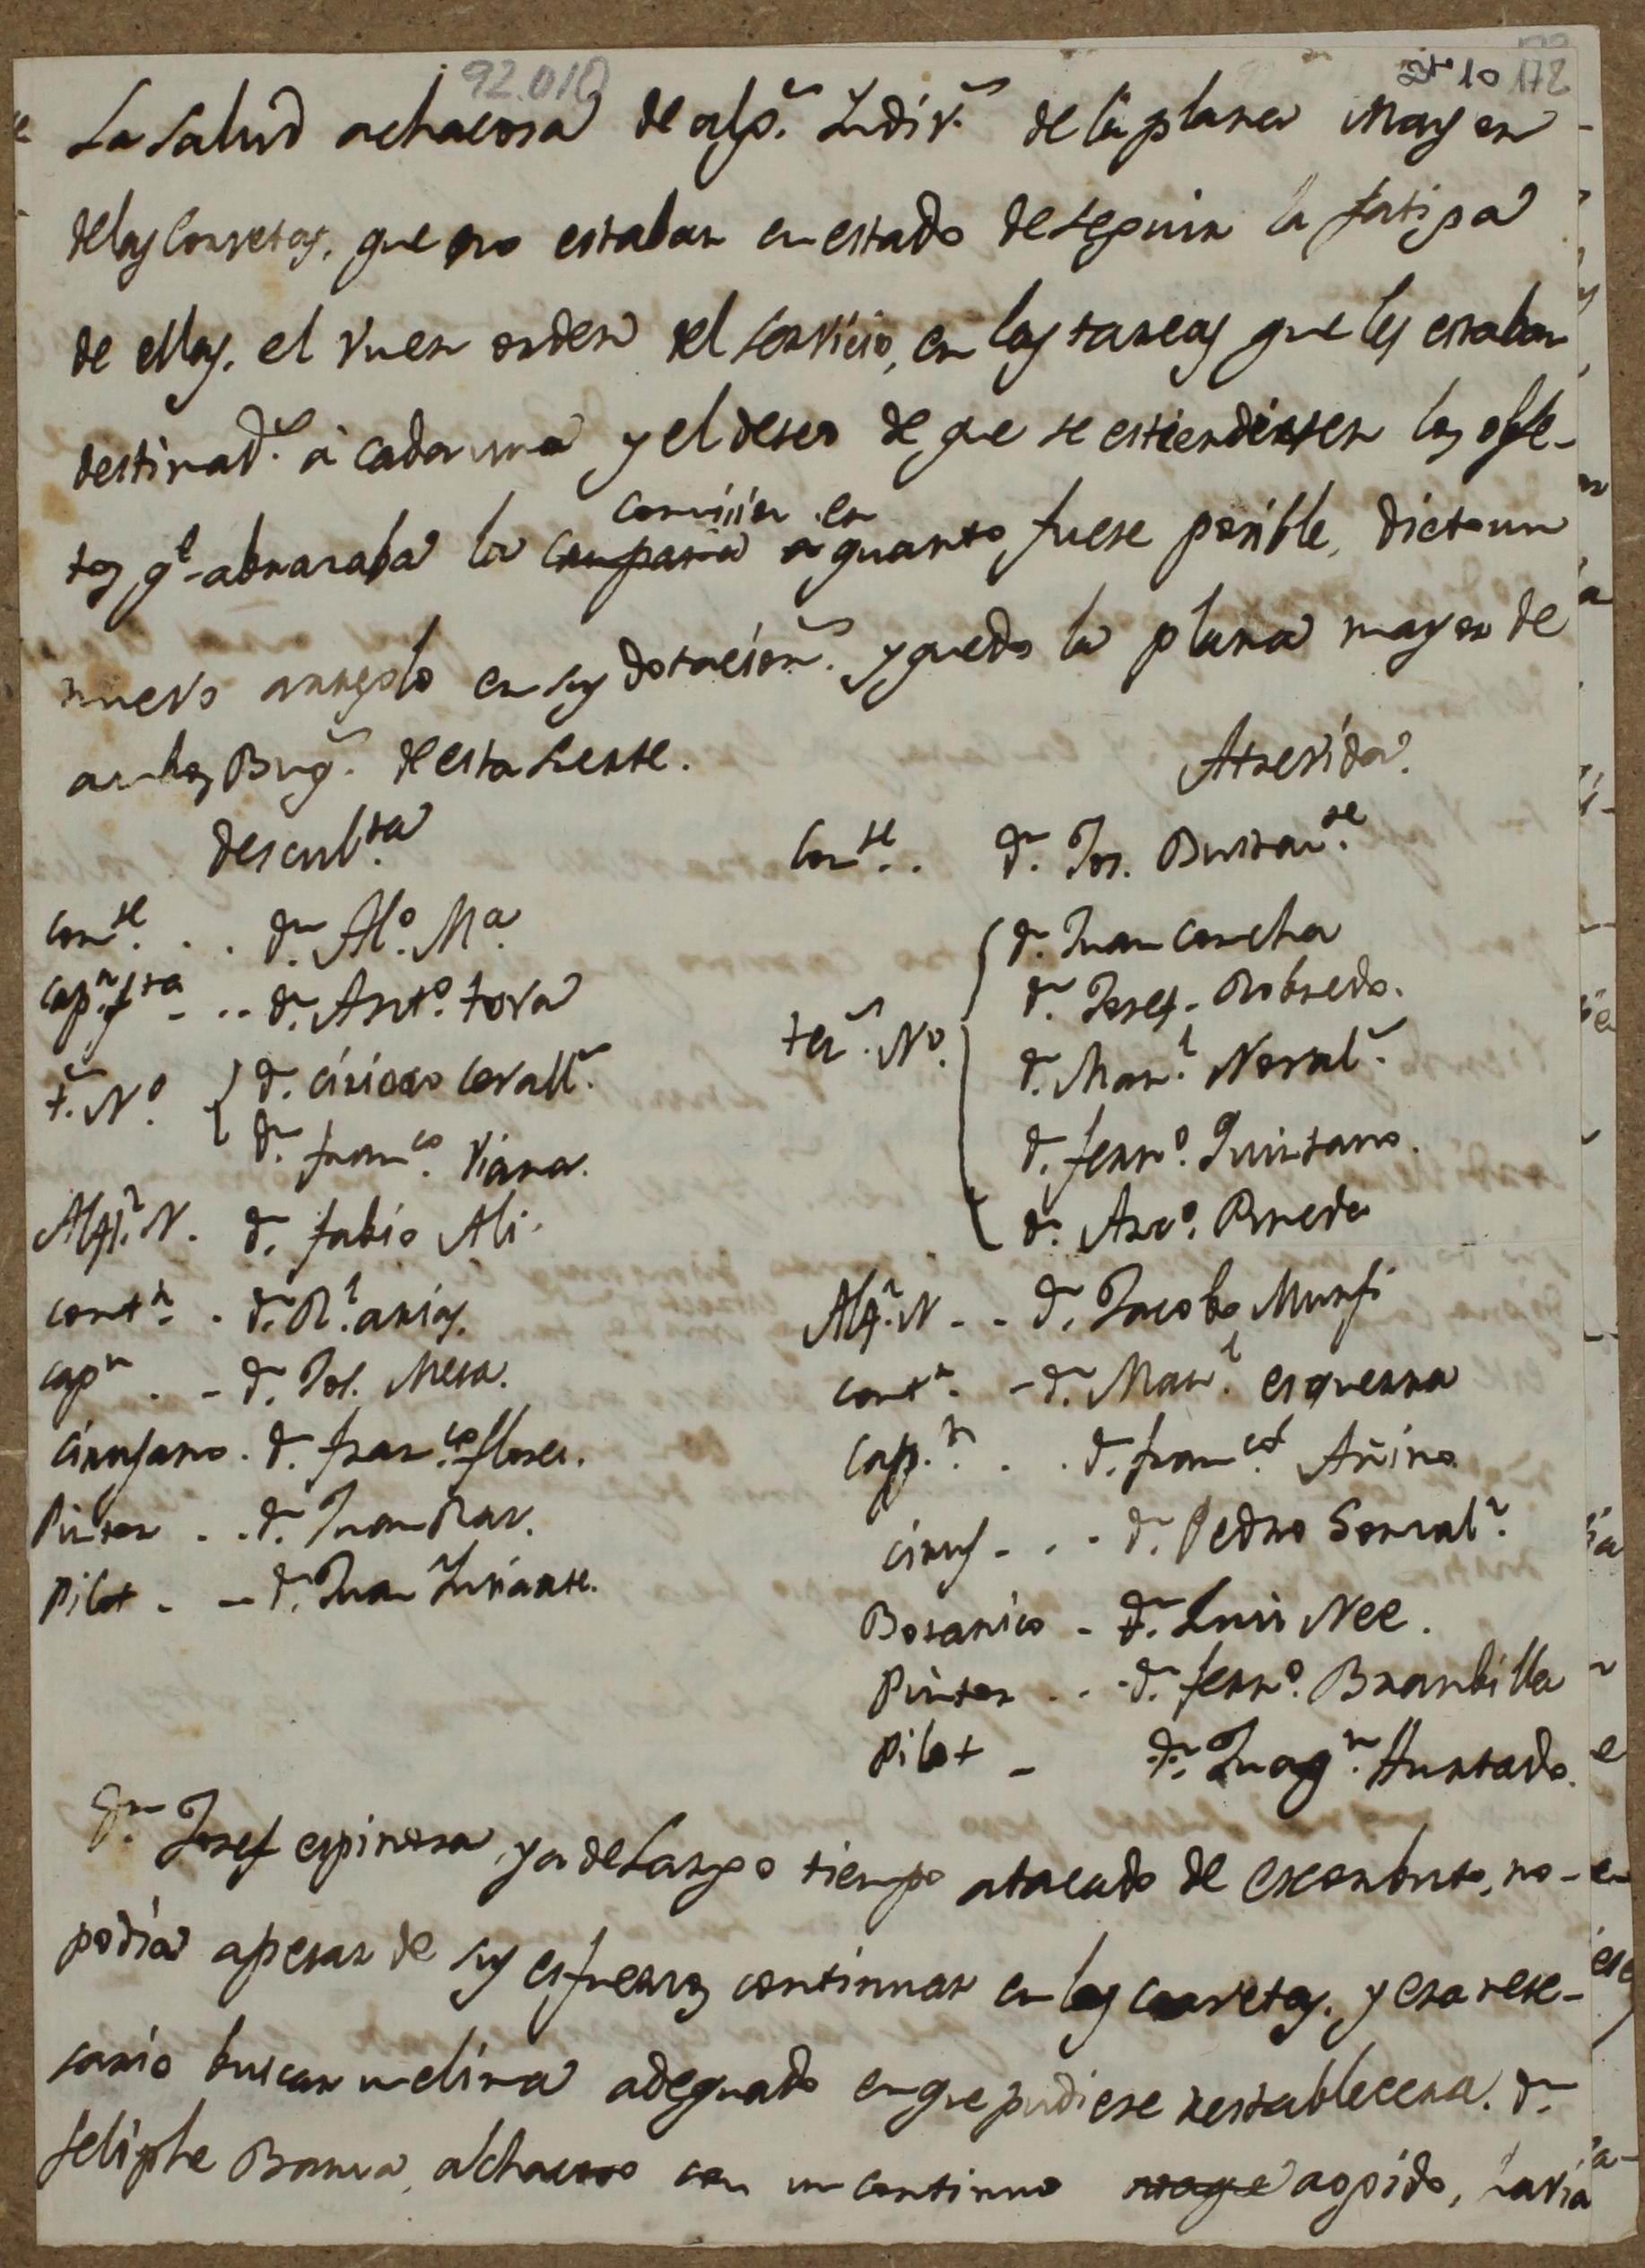 92.010
10 172
La Salud achacosa de alg.s Indiv.s de la plana Mayor
de las Corvetas, que no estaban en estado de seguir la fatiga
de ellas, el vuen orden del servicio, en las tareas que les estaban
destinad.s à cada una y el deseo de que se estiendiesen los obje-
tos q.e abrazaba la comision en
Campaña a quanto fuese posible, dicto un
nuevo arreglo en sus dotacion.s y quedo la plana mayor de
ambos Buq.s de esta suerte.
Descub.ta
Com.te . . d.n Al.o Ma.
Cap.n f.ta - .. d.n Ant.o tova
t.s N.o d. ciriaco Cevall.s
d.n Fran.co Viana.
Alf.z N. d. fabio Ali.
cont.r . d.n R.l arias.
cap.n . - d.n Jos. Mesa.
cirujano . d.n fran.co flores.
Pintor . . d.n Juan Rav.
Pilot - - d.n Juan Inciarte.
Atrevida
Com.te . . d.n Jos. Bustam.te
ten.s N.o d.n Juan Concha
d.n Josef - Robredo.
d.n Man.l Noval.s
d.n fern.o Quintano.
d.n Ant.o Pineda
Alf.z N - - d.n Jacobo Murfi
cont.r - d.n Man.l esquerra
Cap.n . . . d.n fran.co Añino
ciruj - . . d.n Pedro Gonzal.z
Botanico - d.n Luis Nee.
Pintor . . - d.n fern.o Brambilla
Pilot - d.n Juaq.n Hurtado.
d.n Josef espinosa, ya de Largo tiempo atacado de escorbuto, no -
podia apesar de sus esfuerzos continuar en las corvetas, y era nese-
sario buscar un clima adequado en que pudiese restablecerse. d.n
feliphe Bauza, achacoso con un continuo agido, havia